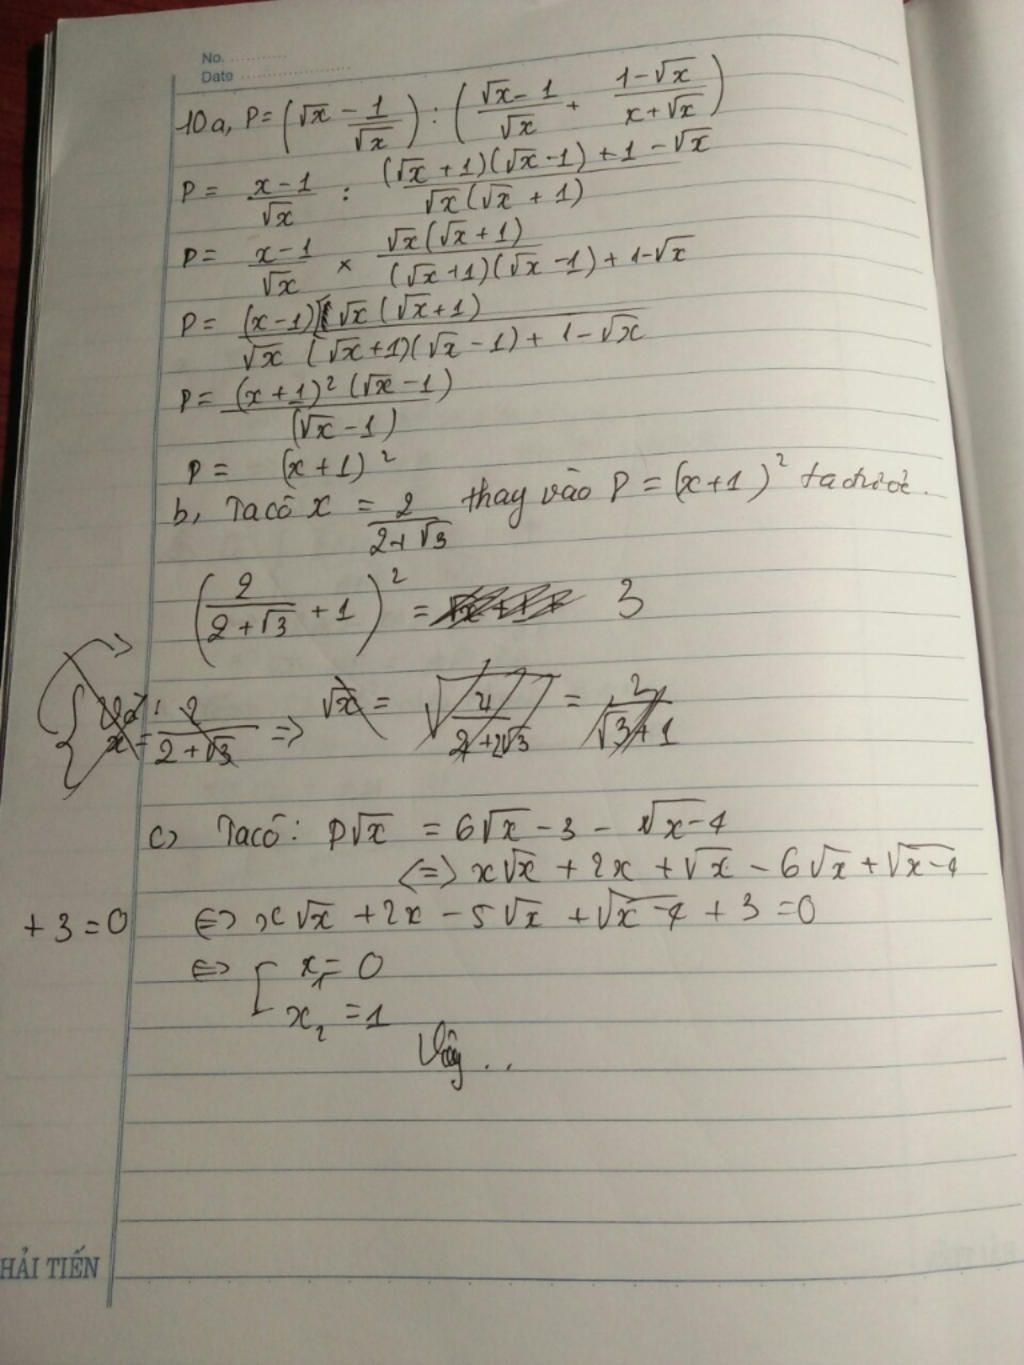 No. ............
Date ......................
10a, P = (√x - 1/√x) : ((√x - 1)/√x + (1 - √x)/(x + √x))
P = (x - 1)/√x : ((√x + 1)(√x - 1) + 1 - √x)/(√x(√x + 1))
P = (x - 1)/√x × (√x(√x + 1))/((√x + 1)(√x - 1) + 1 - √x)
P = ((x - 1)√x(√x + 1))/(√x (√x + 1)(√x - 1) + 1 - √x)
P = ((x + 1)² (√x - 1))/(√x - 1)
P = (x + 1)²
b, Ta có x = 2/(2 + √3) thay vào P = (x + 1)² ta được.
(2/(2 + √3) + 1)² = 3
x = 2/(2 + √3) => √x = √(4/(2 + 2√3)) = 2/(√3 + 1)
c) Ta có: P√x = 6√x - 3 - √x-4
<=> x√x + 2x + √x - 6√x + √x-4
+ 3 = 0
<=> x√x + 2x - 5√x + √x-4 + 3 = 0
<=> [ x₁ = 0
x₂ = 1
Vậy ..
HẢI TIẾN